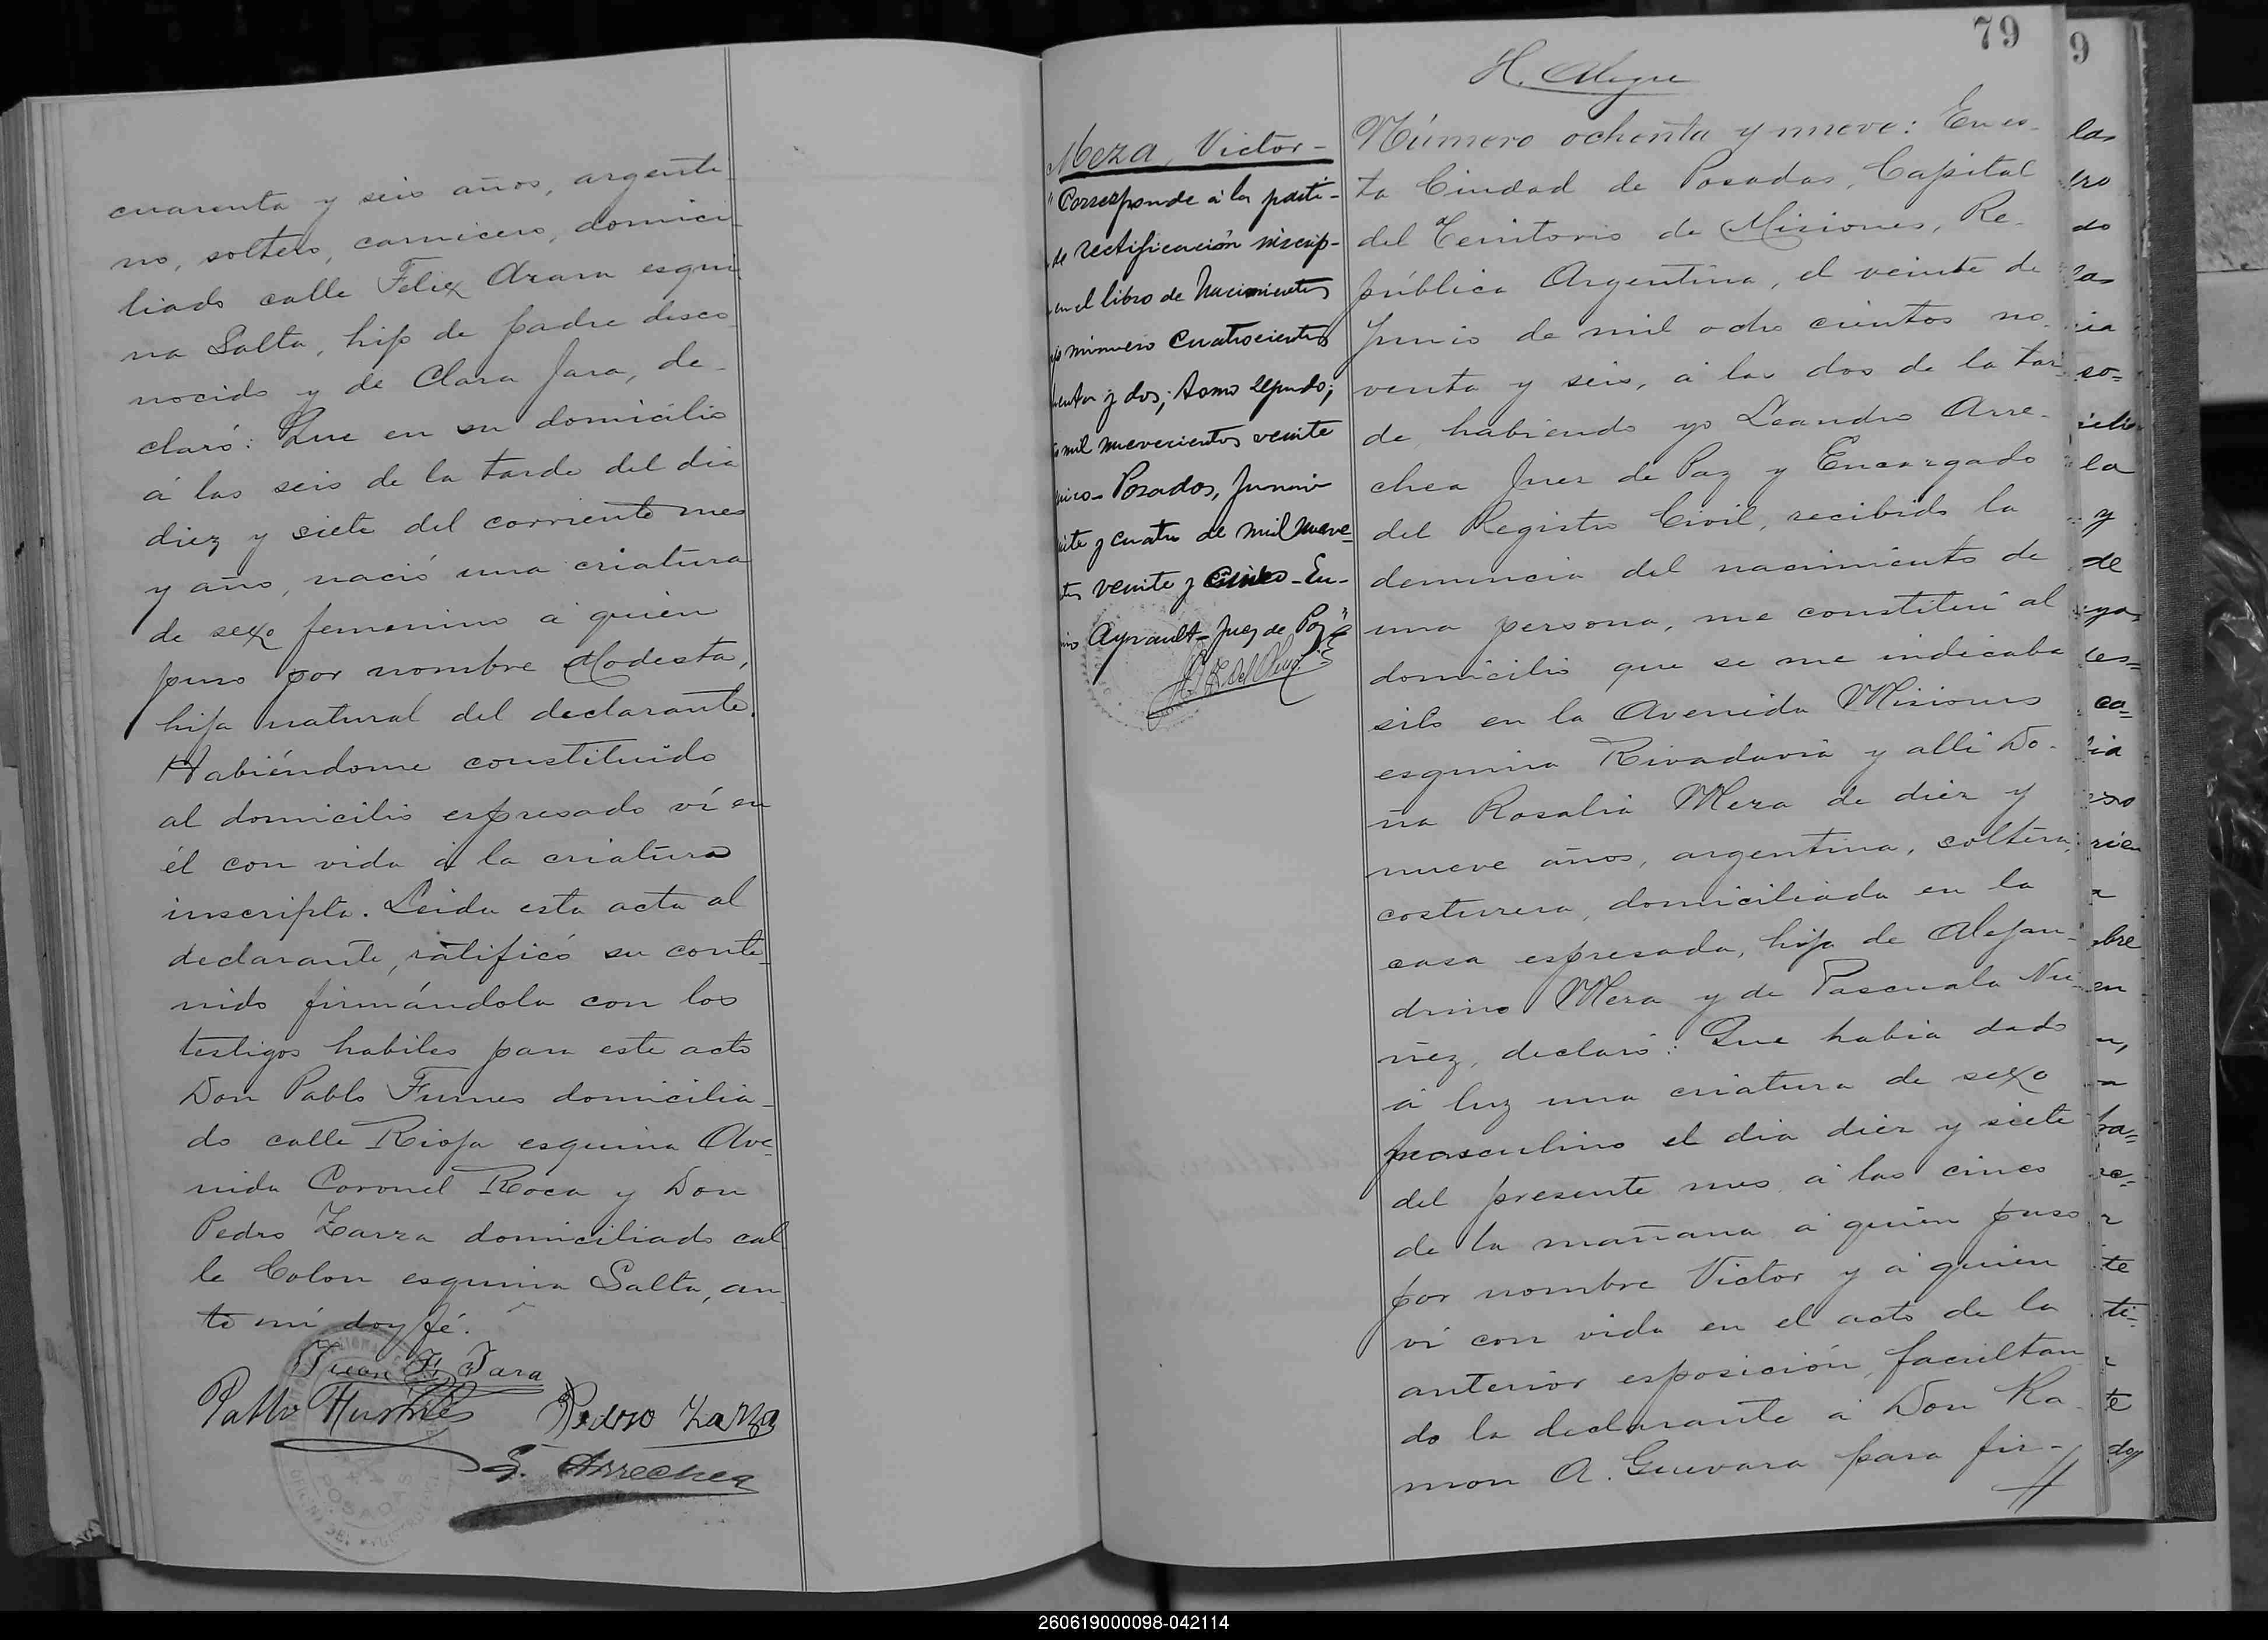 cuarenta y seis años, argenti-
no, soltero, carnicero, domici-
liado calle Felix Azara esqui-
na Salta, hijo de padre desco-
nocido y de Clara Jara, de-
claró: Que en su domicilio
á las seis de la tarde del dia
diez y siete del corriente mes
y año, nació una criatura
de sexo femenino á quien
puso por nombre Modesta,
hija natural del declarante.
Habiéndome constituido
al domicilio espresado ví en
él con vida á la criatura
inscripta. Leida esta acta al
declarante, ratificó su conte-
nido firmándola con los
testigos habiles para este acto
Don Pablo Funes domicilia-
do calle Rioja esquina Ave-
nida Coronel Roca y Don
Pedro Zarza domiciliado cal
le Colon esquina Salta, an-
te mí doy fé.
Juan F. Jara
Pablo Pedro Zarza
L. Arrechea
POSADAS
79
H. Alegre
Meza, Victor-
"Corresponde á la parti-
de rectificación inscrip-
en el libro de Nacimientos
número cuatrocientos
y dos; tomo segundo;
mil novecientos veinte
Posadas, Junio
cuatro de mil nove-
veinte y cinco-Eu-
Ayrault-Juez de Paz"
Número ochenta y nueve: En es-
ta Ciudad de Posadas, Capital
del Territorio de Misiones, Re-
pública Argentina, el veinte de
Junio de mil ocho cientos no-
venta y seis, á las dos de la tar-
de habiendo yo Leandro Arre-
chea Juez de Paz y Encargado
del Registro Civil, recibido la
denuncia del nacimiento de
una persona, me constituí al
domicilio que se me indicaba
sito en la Avenida Misiones
esquina Rivadavia y alli Do-
ña Rosalia Meza de diez y
nueve años, argentina, soltera,
costurera, domiciliada en la
casa espresada, hija de Alejan-
drino Meza y de Pascuala Nu-
ñez, declaró: Que habia dado
á luz una criatura de sexo
masculino el dia diez y siete
del presente mes á las cinco
de la mañana á quien puso
por nombre Victor y á quien
ví con vida en el acto de la
anterior esposición, facultan
do la declarante á Don Ra-
mon A. Guevara para fir-
9
las
do
las
so-
la
y
de
te
te
doy
260619000098-042114